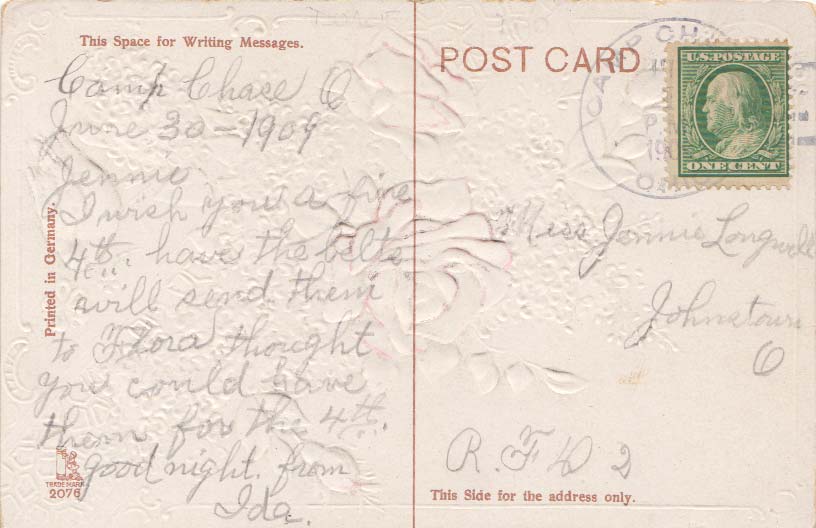 This Space for Writing Messages.
Camp Chase O
June 30-1909
Jennie
I wish you a fine
4th. have the belts
will send them
to Flora thought
you could have
them for the 4th.
good night. from
Ida.
Printed in Germany.
TRADE MARK
2076
POST CARD
CAMP CH
U.S. POSTAGE
ONE CENT
Miss Jennie Longwell
Johnstown
O
R. F D 2
This Side for the address only.